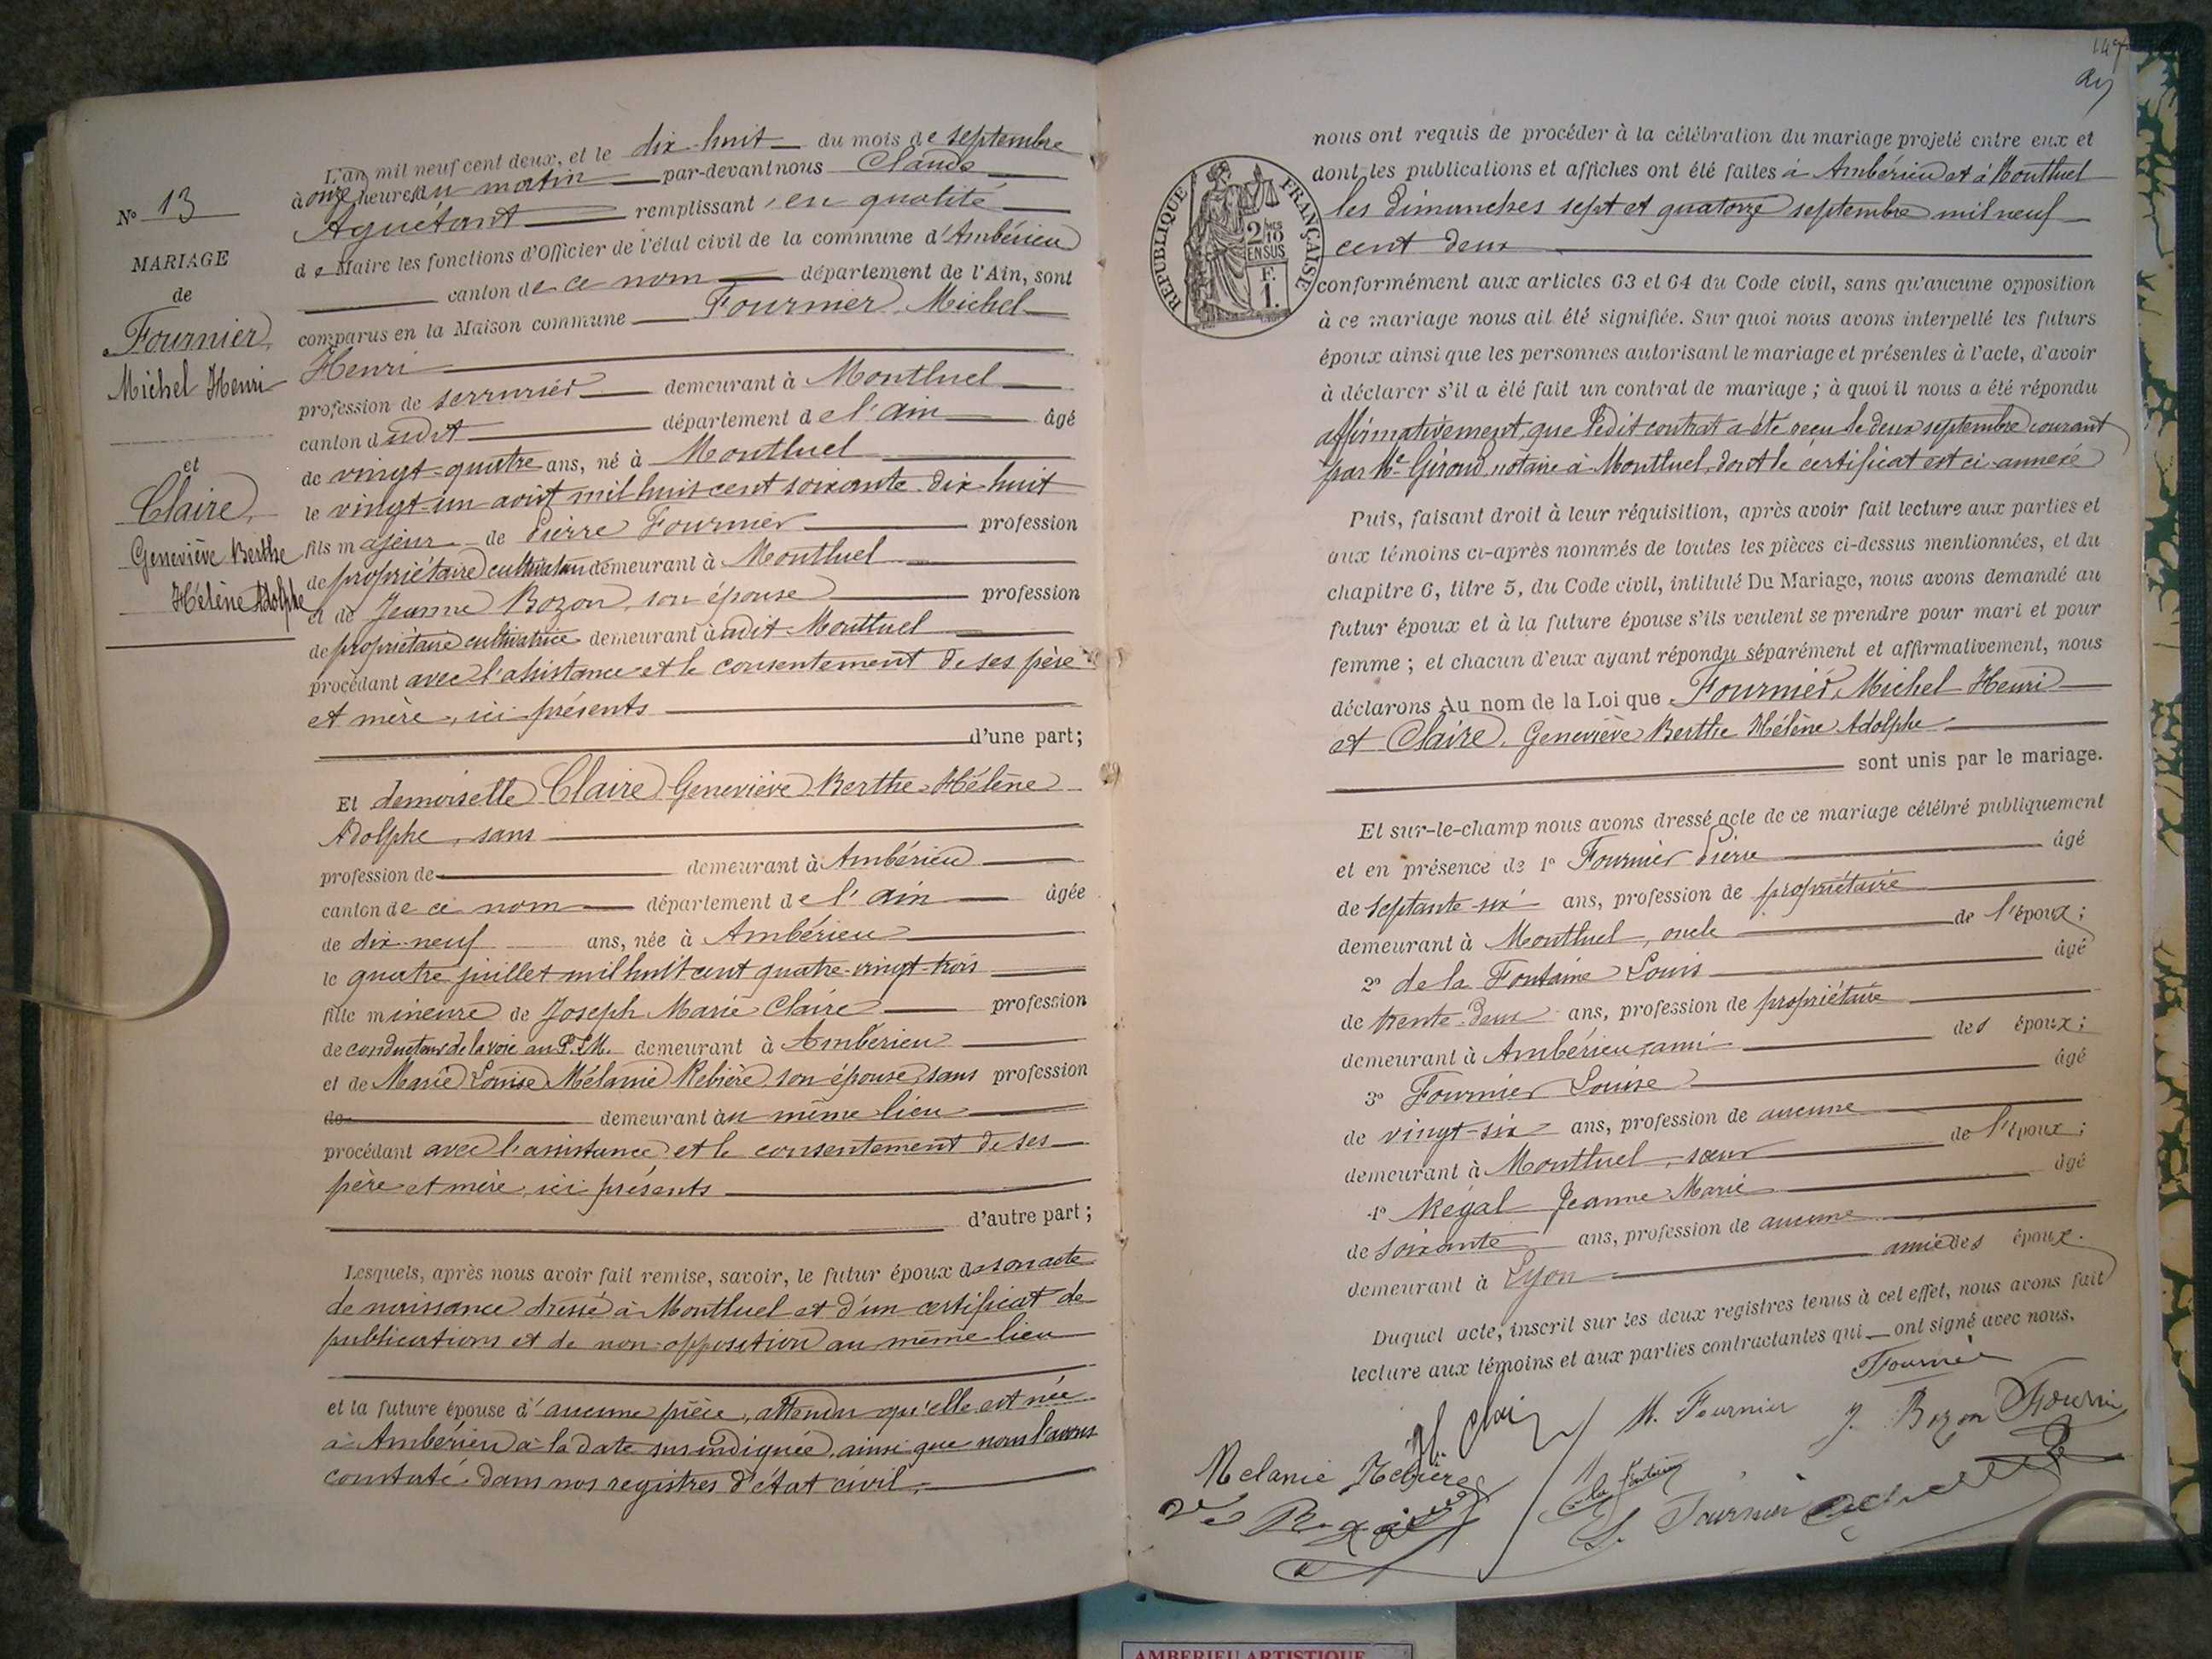 N° 13
MARIAGE
de
Fournier,
Michel Henri
et
Claire,
Geneviève Berthe
Hélène Adolphe
L'an mil neuf cent deux, et le dix-huit du mois de septembre
à onze heures du matin par-devant nous Claude
Aguétant remplissant, en qualité
de Maire les fonctions d'Officier de l'état civil de la commune d'Ambérieu
canton de ce nom département de l'Ain, sont
comparus en la Maison commune Fournier, Michel
Henri
profession de serrurier demeurant à Montluel
canton dudit département de l'ain âgé
de vingt-quatre ans, né à Montluel
le vingt-un août mil huit cent soixante-dix-huit
fils majeur de Pierre Fournier profession
de propriétaire cultivateur demeurant à Montluel
et de Jeanne Bozon, son épouse profession
de propriétaire cultivatrice demeurant audit Montluel
procédant avec l'assistance et le consentement de ses père
et mère, ici présents
d'une part;
Et demoiselle Claire, Geneviève Berthe Hélène
Adolphe, sans
profession de demeurant à Ambérieu
canton de ce nom département de l'ain âgée
de dix-neuf ans, née à Ambérieu
le quatre juillet mil huit cent quatre-vingt-trois
fille mineure de Joseph Marie Claire profession
de conducteur de la voie au P.L.M. demeurant à Ambérieu
et de Marie Louise Mélanie Rebière, son épouse, sans profession
de demeurant au même lieu
procédant avec l'assistance et le consentement de ses
père et mère, ici présents
d'autre part;
Lesquels, après nous avoir fait remise, savoir, le futur époux de son acte
de naissance dressé à Montluel et d'un certificat de
publications et de non-opposition au même lieu
et la future épouse d'aucune pièce, attendu qu'elle est née
à Ambérieu à la date sus indiquée, ainsi que nous l'avons
constaté dans nos registres d'état civil.
RÉPUBLIQUE FRANÇAISE
2/10 EN SUS
F.
1.
nous ont requis de procéder à la célébration du mariage projeté entre eux et
dont les publications et affiches ont été faites à Ambérieu et à Montluel
les dimanches sept et quatorze septembre mil neuf
cent deux
conformément aux articles 63 et 64 du Code civil, sans qu'aucune opposition
à ce mariage nous ait été signifiée. Sur quoi nous avons interpellé les futurs
époux ainsi que les personnes autorisant le mariage et présentes à l'acte, d'avoir
à déclarer s'il a été fait un contrat de mariage; à quoi il nous a été répondu
affirmativement, que ledit contrat a été reçu le deux septembre courant
par Me Giroud, notaire à Montluel, dont le certificat est ci-annexé
Puis, faisant droit à leur réquisition, après avoir fait lecture aux parties et
aux témoins ci-après nommés de toutes les pièces ci-dessus mentionnées, et du
chapitre 6, titre 5, du Code civil, intitulé Du Mariage, nous avons demandé au
futur époux et à la future épouse s'ils veulent se prendre pour mari et pour
femme; et chacun d'eux ayant répondu séparément et affirmativement, nous
déclarons Au nom de la Loi que Fournier, Michel Henri
et Claire, Geneviève Berthe Hélène Adolphe
sont unis par le mariage.
Et sur-le-champ nous avons dressé acte de ce mariage célébré publiquement
et en présence de 1° Fournier Pierre âgé
de septante-six ans, profession de propriétaire
demeurant à Montluel, oncle de l'époux;
2° de la Fontaine Louis âgé
de trente-deux ans, profession de propriétaire
demeurant à Ambérieu, ami des époux;
3° Fournier Louise âgé
de vingt-six ans, profession de aucune
demeurant à Montluel, sœur de l'époux;
4° Régal Jeanne Marie âgé
de soixante ans, profession de aucune
demeurant à Lyon amie des époux.
Duquel acte, inscrit sur les deux registres tenus à cet effet, nous avons fait
lecture aux témoins et aux parties contractantes qui ont signé avec nous.
Fournier
M. Fournier J. Bozon
Melanie Rebière
L. Fournier
AMBERIEU ARTISTIQUE